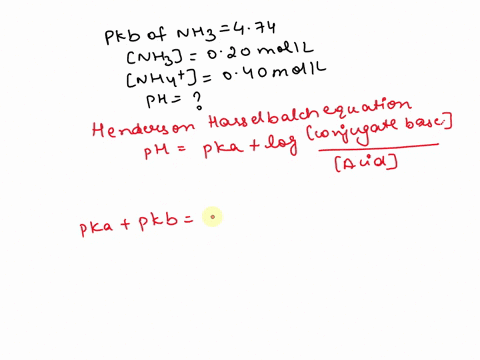 Pkb of NH3 = 4.74
[NH3] = 0.20 mol/L
[NH4+] = 0.40 mol/L
PH = ?
Henderson Hasselbalch equation
pH = pka + log [conjugate base]
[Acid]
pka + pkb =